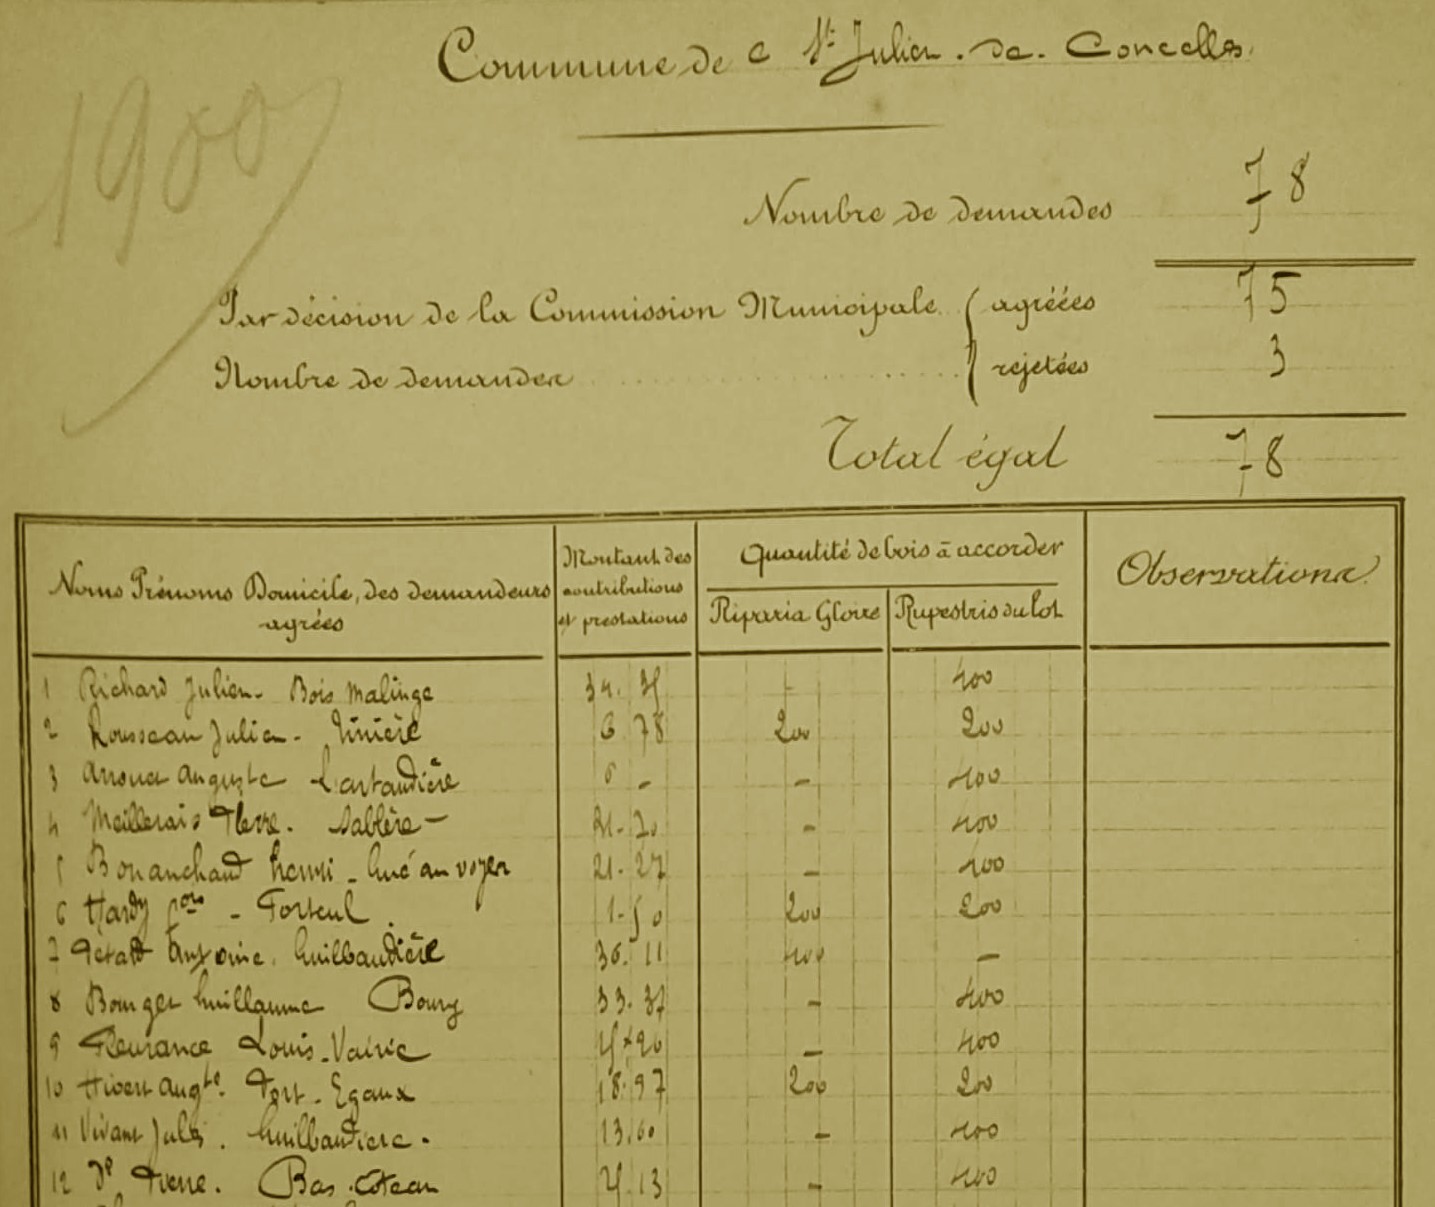 Commune de St Julien. de. Concelles.
1900
Nombre de demandes 78
Par décision de la Commission Municipale ( agréées 75
Nombre de demandes ( rejetées 3
Total égal 78
Noms Prénoms Domicile, des demandeurs agrées
Montant des contributions et prestations
Quantité de bois à accorder
Riparia Gloire
Rupestris du lot
Observations
1 Richard Julien - Bois Malinge 34. 35 - 400
2 Rousseau Julien - 6 78 200 200
3 Auguste 6 - - 400
4 Meillerais Pierre. Sablère - 21. 70 - 400
5 Bonanchaud henri - Gué au voyer 21. 27 - 400
6 Hardy - Porteul 1. 50 200 200
7 Petard Antoine. Guilbaudière 36. 11 400 -
8 Bouyer Guillaume Bourg 33. 37 - 400
9 Fleurance Louis - - 400
10 Hivert Augte. Port - Egaux 18. 97 200 200
11 Vivant Jules. Guilbaudiere. 13. 60 - 400
12 Pierre. Bas. Coteau 13 - 400